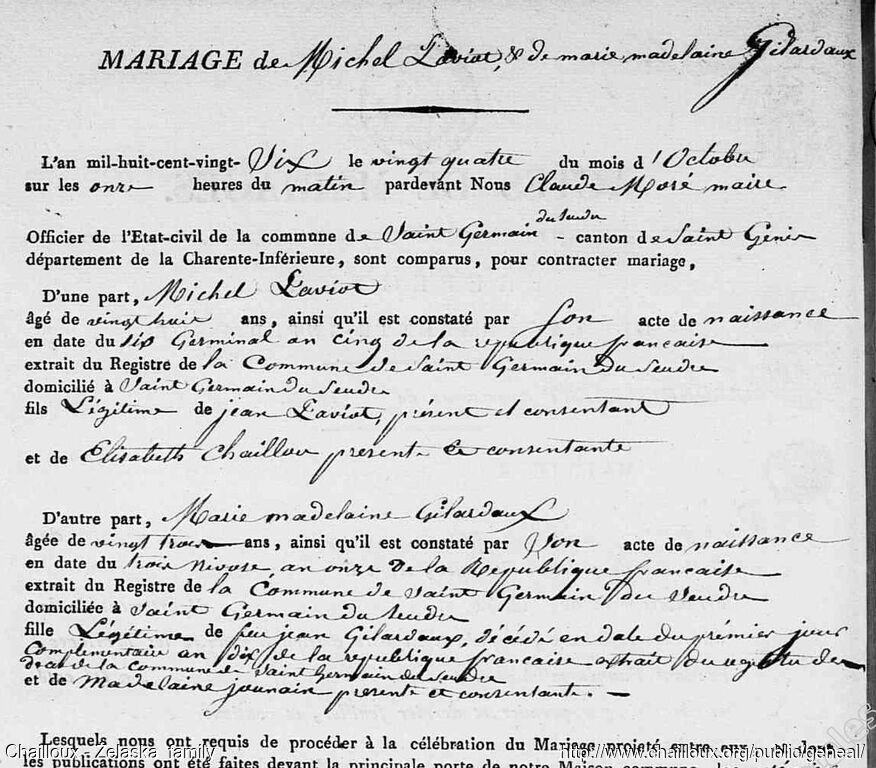 MARIAGE de Michel Laviot, & de marie madelaine Gilardaux
L'an mil-huit-cent-vingt- Six le vingt quatre du mois d'Octobre
sur les onze heures du matin pardevant Nous Claude Mosé maire
du Seudre
Officier de l'Etat-civil de la commune de Saint Germain - canton de Saint Genis
département de la Charente-Inférieure, sont comparus, pour contracter mariage,
D'une part, Michel Laviot
âgé de vingt huit ans, ainsi qu'il est constaté par son acte de naissance
en date du six Germinal an cinq de la republique francaise
extrait du Registre de la Commune de Saint Germain du Seudre
domicilié à Saint Germain du Seudre
fils Légitime de jean Laviot, présent et consentant
et de Elisabeth Chaillou presente et consentante
D'autre part, Marie madelaine Gilardaux
âgée de vingt trois ans, ainsi qu'il est constaté par son acte de naissance
en date du trois nivose, an onze de la Republique francaise
extrait du Registre de la Commune de Saint Germain du Seudre
domiciliée à Saint Germain du Seudre
fille Légitime de feu jean Gilardaux, décédé en date du prémier jour
Complementaire an dix de la republique francaise extrait du registre de
de la Commune de Saint Germain du Seudre
et de Madelaine jounain presente et consentante. -
Lesquels nous ont requis de procéder à la célébration du Mariage projeté entre eux, et dont
les publications ont été faites devant la principale porte de notre Maison commune,
Chailloux - Zelaska family
http://www.chailloux.org/public/geneal/